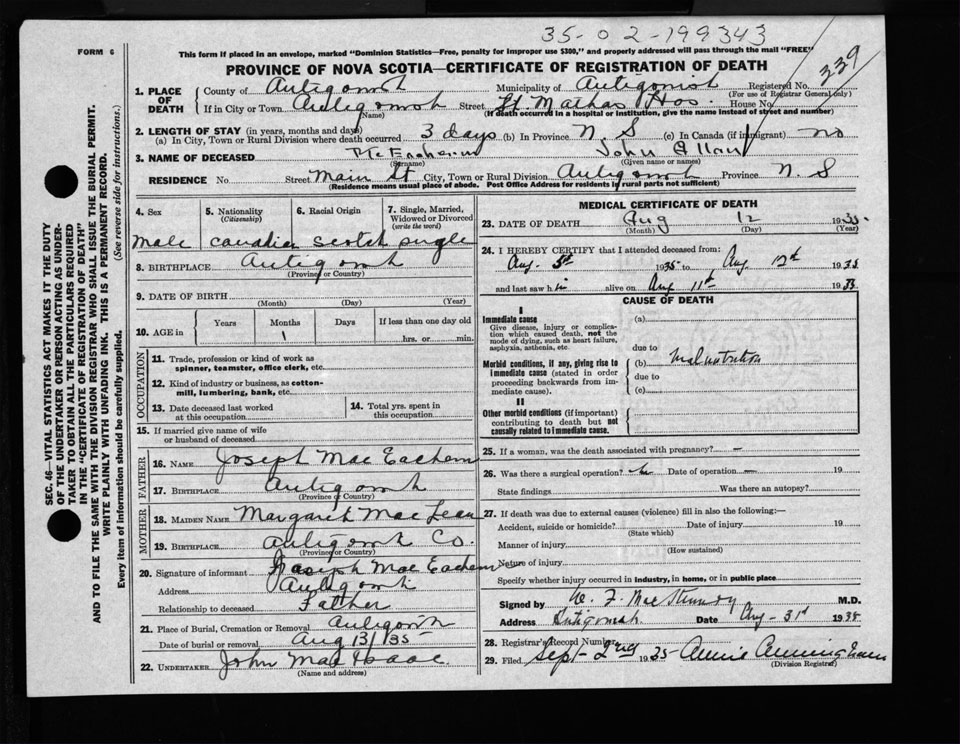 35-02-199343
FORM 6
This form if placed in an envelope, marked "Dominion Statistics—Free, penalty for improper use $300," and properly addressed will pass through the mail "FREE"
339
PROVINCE OF NOVA SCOTIA—CERTIFICATE OF REGISTRATION OF DEATH
1. PLACE OF DEATH
County of Antigonish Municipality of Antigonish Registered No.
(For use of Registrar General only)
If in City or Town Antigonish Street St. Marthas Hos. House No.
(Name) (If death occurred in a hospital or institution, give the name instead of street and number)
2. LENGTH OF STAY (in years, months and days)
(a) In City, Town or Rural Division where death occurred 3 days (b) In Province N. S (c) In Canada (if immigrant) no
3. NAME OF DECEASED McEachern John Allan
(Surname) (Given name or names)
RESIDENCE No. Street Main St City, Town or Rural Division Antigonish Province N. S
(Residence means usual place of abode. Post Office Address for residents in rural parts not sufficient)
4. Sex
Male
5. Nationality
(Citizenship)
Canadian
6. Racial Origin
Scotch
7. Single, Married, Widowed or Divorced
(write the word)
single
8. BIRTHPLACE Antigonish
(Province or Country)
9. DATE OF BIRTH
(Month) (Day) (Year)
10. AGE in Years Months Days If less than one day old
1 hrs. or min.
OCCUPATION
11. Trade, profession or kind of work as
spinner, teamster, office clerk, etc.
12. Kind of industry or business, as cotton-
mill, lumbering, bank, etc.
13. Date deceased last worked
at this occupation
14. Total yrs. spent in
this occupation
15. If married give name of wife
or husband of deceased
FATHER
16. NAME Joseph MacEachern
17. BIRTHPLACE Antigonish
(Province or Country)
MOTHER
18. MAIDEN NAME Margaret MacLean
19. BIRTHPLACE Antigonish Co.
(Province or Country)
20. Signature of informant Joseph MacEachern
Address Antigonish
Relationship to deceased Father
21. Place of Burial, Cremation or Removal Antigonish
Date of burial or removal Aug 13/35
22. UNDERTAKER John MacIsaac
(Name and address)
MEDICAL CERTIFICATE OF DEATH
23. DATE OF DEATH Aug 12 1935
(Month) (Day) (Year)
24. I HEREBY CERTIFY that I attended deceased from:
Aug. 1935 to Aug. 12th 1935
and last saw him alive on Aug 11th 1935
CAUSE OF DEATH
I
Immediate cause
Give disease, injury or complica-
tion which caused death, not the
mode of dying, such as heart failure,
asphyxia, asthenia, etc.
(a)
due to
Morbid conditions, if any, giving rise to
immediate cause (stated in order
proceeding backwards from im-
mediate cause).
(b) Malnutrition
due to
(c)
II
Other morbid conditions (if important)
contributing to death but not
causally related to immediate cause.
25. If a woman, was the death associated with pregnancy? —
26. Was there a surgical operation? Date of operation — 19
State findings Was there an autopsy?
27. If death was due to external causes (violence) fill in also the following:—
Accident, suicide or homicide? Date of injury 19
(State which)
Manner of injury
(How sustained)
Nature of injury
Specify whether injury occurred in industry, in home, or in public place
Signed by M.D.
Address Antigonish Date Aug-31st 1935
28. Registrar's Record Number
29. Filed Sept-2nd 1935 Annie
(Division Registrar)
SEC. 46—VITAL STATISTICS ACT MAKES IT THE DUTY
OF THE UNDERTAKER OR PERSON ACTING AS UNDER-
TAKER TO OBTAIN ALL THE PARTICULARS REQUIRED
IN THE "CERTIFICATE OF REGISTRATION OF DEATH"
AND TO FILE THE SAME WITH THE DIVISION REGISTRAR WHO SHALL ISSUE THE BURIAL PERMIT.
WRITE PLAINLY WITH UNFADING INK. THIS IS A PERMANENT RECORD.
Every item of information should be carefully supplied. (See reverse side for instructions.)